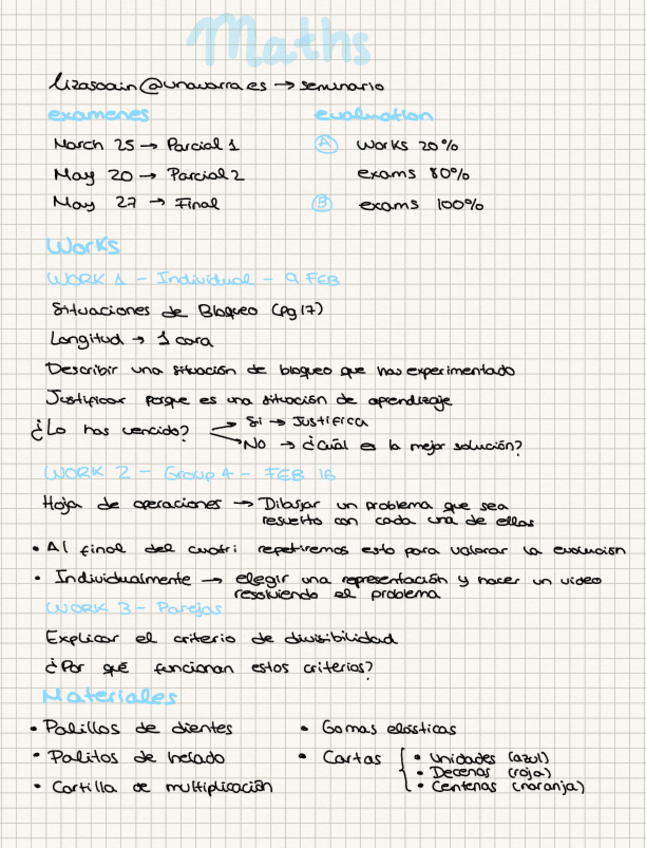 Maths
lizasoain@unavarra.es → seminario
examenes
evaluation
March 25 → Parcial 1
May 20 → Parcial 2
May 27 → Final
A works 20%
exams 80%
B exams 100%
Works
WORK 1 - Individual - 9 FEB
Situaciones de Bloqueo (pg 17)
Longitud → 1 cara
Describir una situación de bloqueo que has experimentado
Justificar porque es una situación de aprendizaje
¿Lo has vencido? → Si → Justifica
→ No → ¿Cuál es la mejor solución?
WORK 2 - Group 4 - FEB 16
Hoja de operaciones → Dibujar un problema que sea
resuelto con cada una de ellas
• Al final del cuatri repetiremos esto para valorar la evolución
• Individualmente → elegir una representación y hacer un video
resolviendo el problema
WORK 3 - Parejas
Explicar el criterio de divisibilidad
¿Por qué funcionan estos criterios?
Materiales
• Palillos de dientes
• Palitos de helado
• Cartilla de multiplicación
• Gomas elásticas
• Cartas
• Unidades (azul)
• Decenas (roja)
• Centenas (naranja)